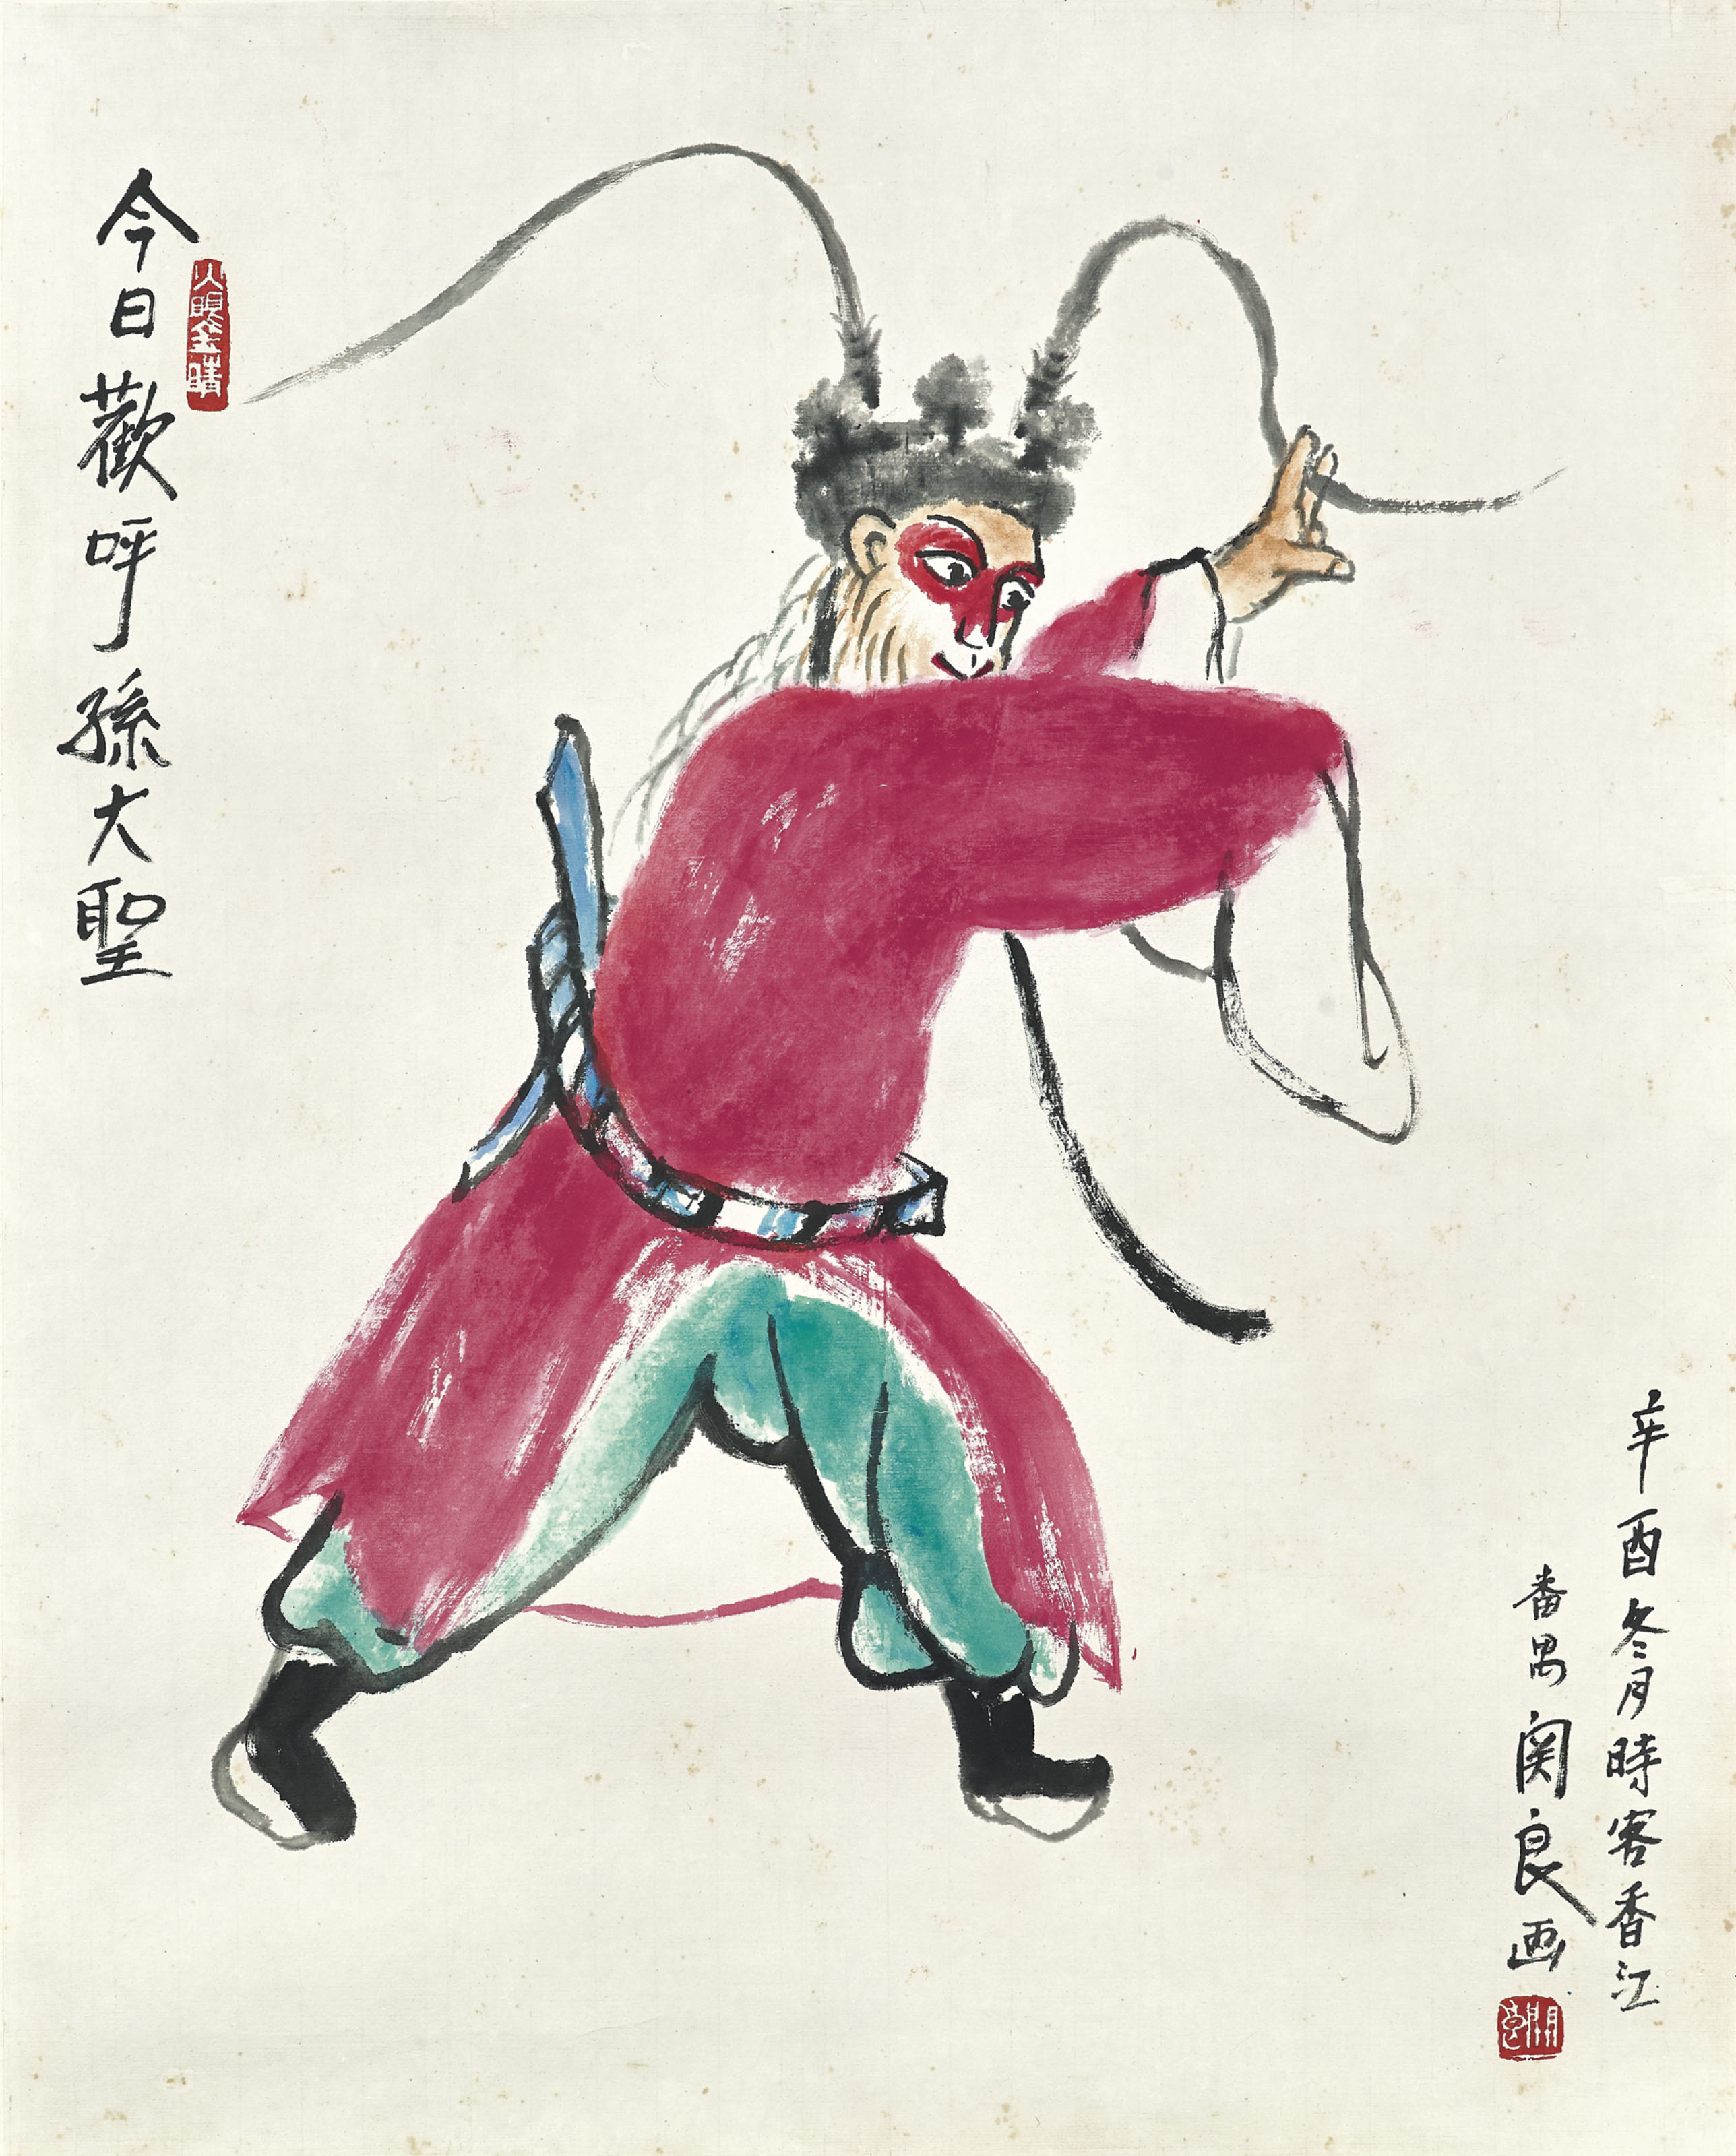 今日歡呼孫大聖
火眼金睛
辛酉冬月時客香江
番禺関良画
關良